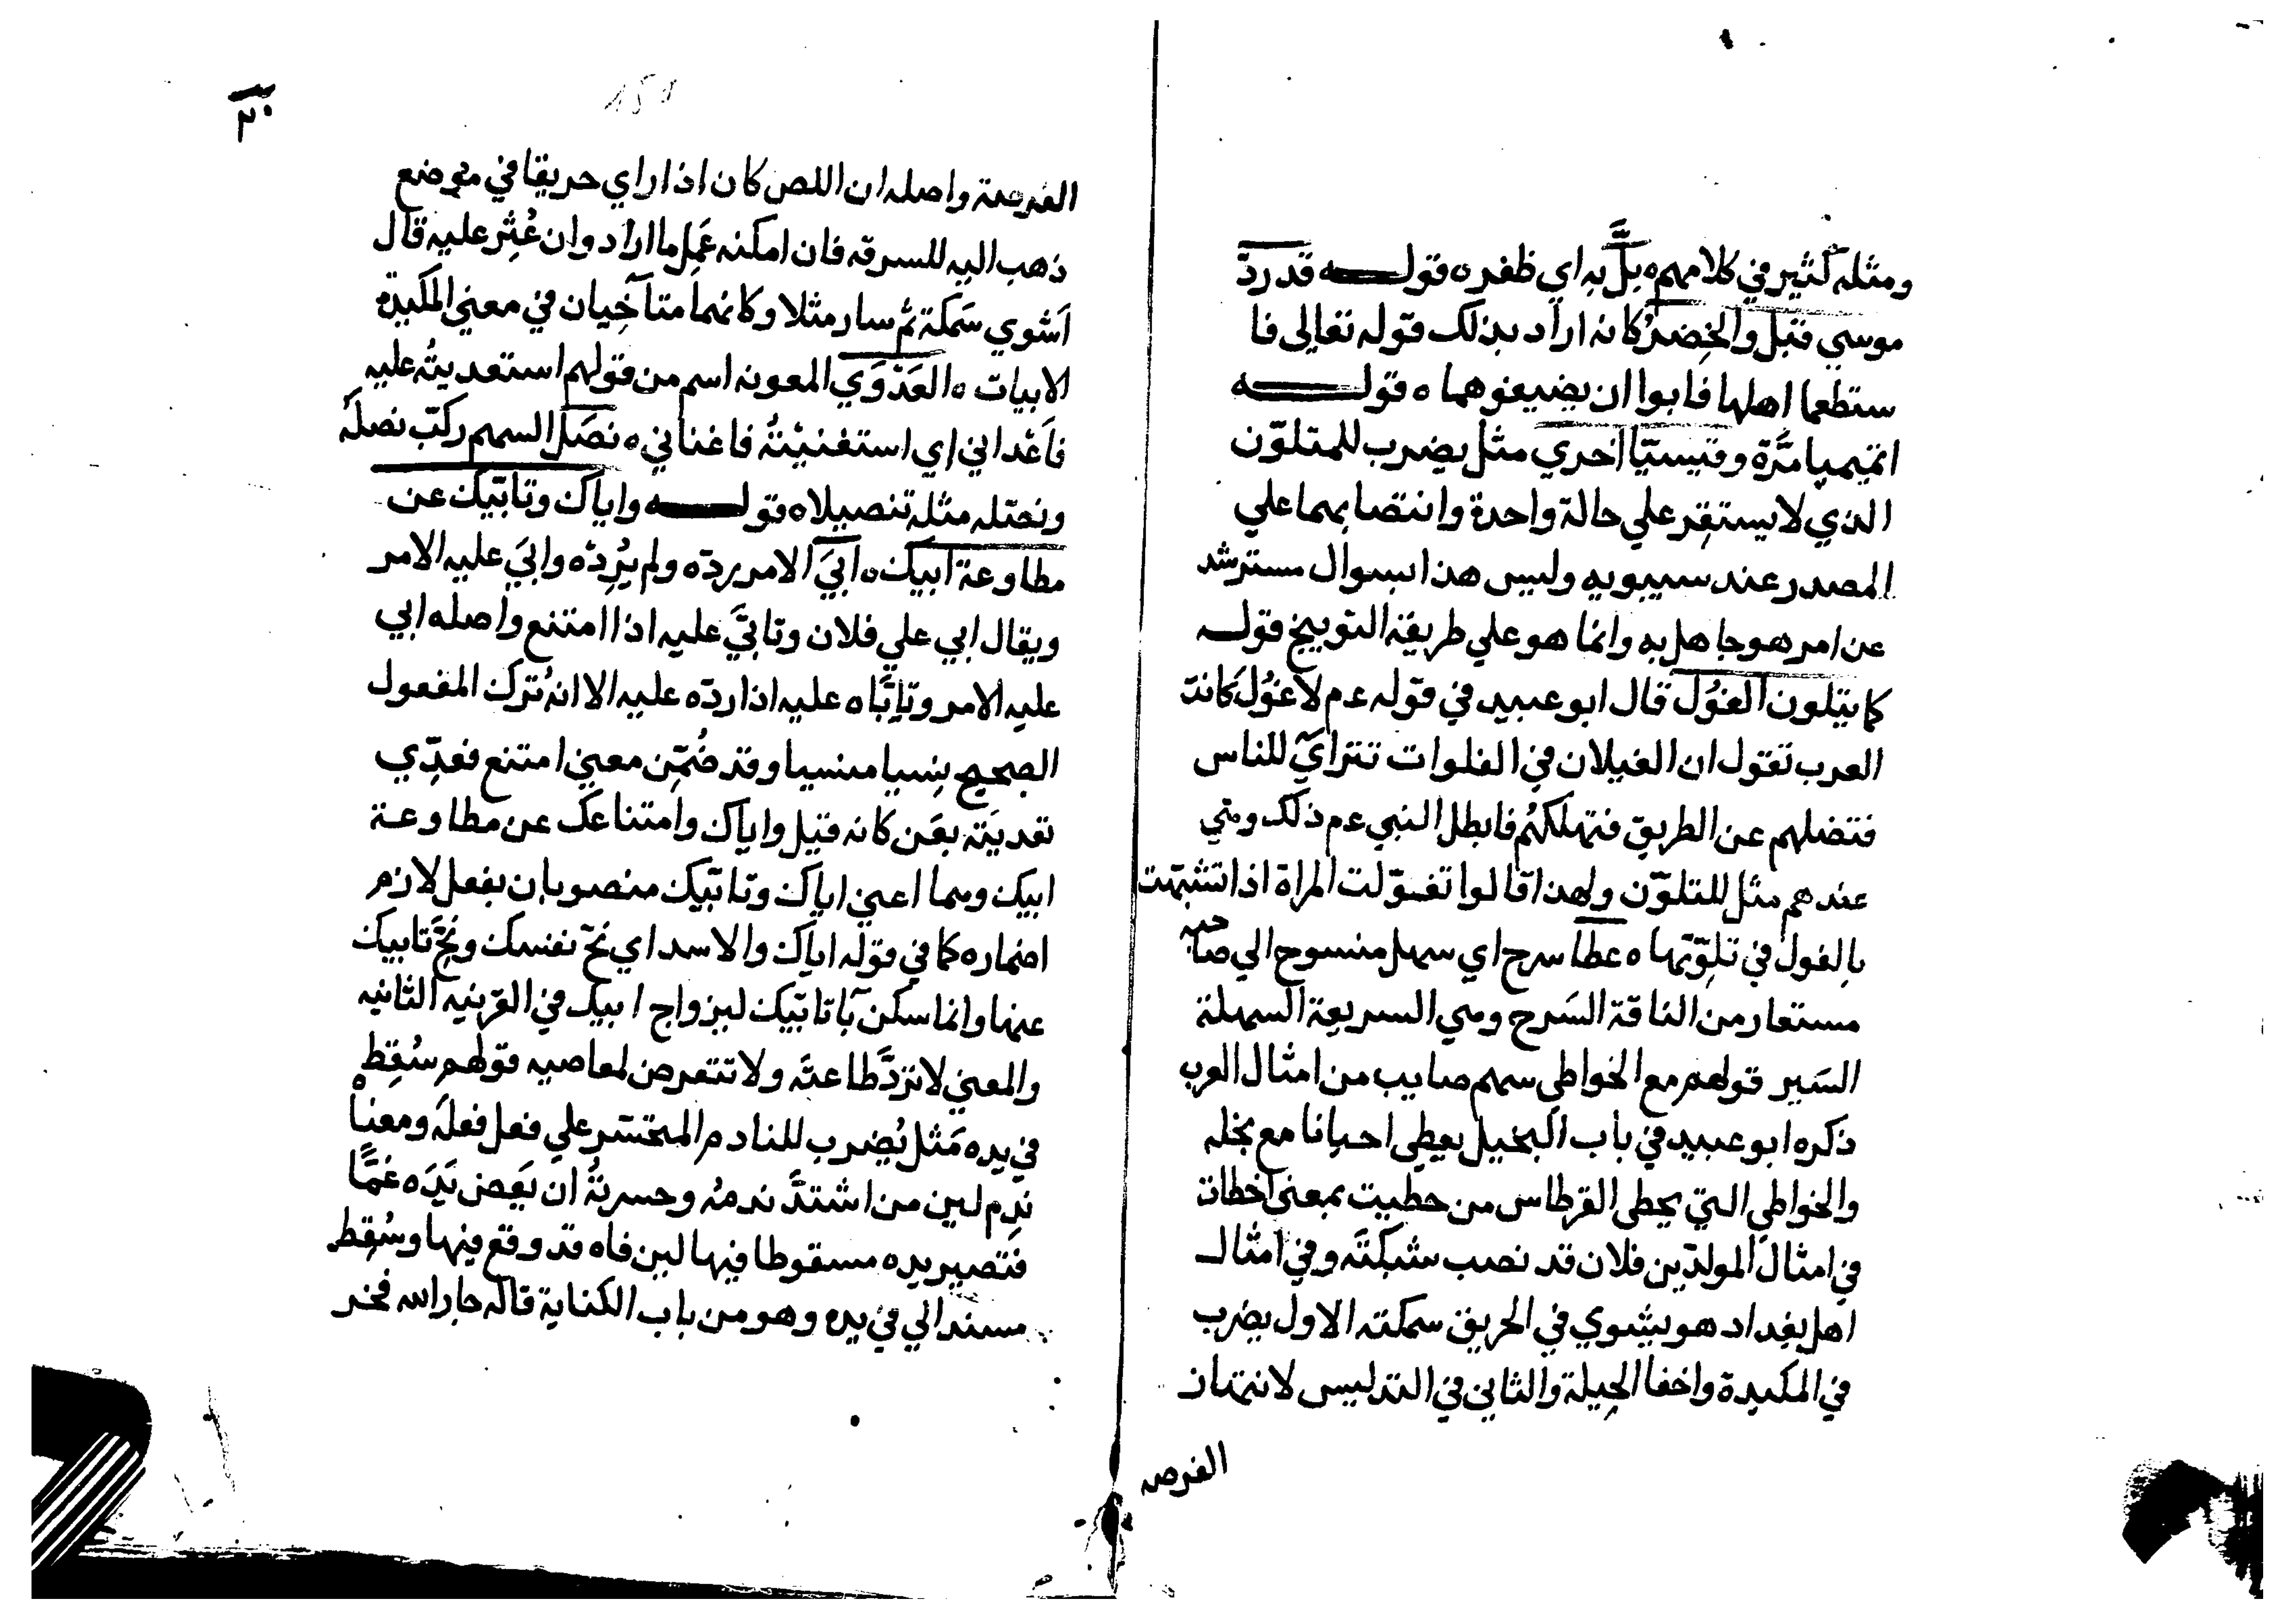 ومثله كثير في كلامهم ه بلَّ به اي ظفره قوله قد ردّ
موسي قبل والخِضرُ كانه اراد بذلك قوله تعالى فا
ستطعما اهلها فابوا ان يضيفوهما ه قوله
اتميميا مرّة وقيسيّا اخري مثل يضرب للمتلوّن
الذي لا يستقِر علي حالة واحدة وانتصابهما علي
المصدر عند سيبويه وليس هذا بسوال مسترشد
عن امر هو جاهل به وانما هو علي طريقة التوبيخ قوله
كما يتلون الغُول قال ابو عبيد في قوله عم لا غُولَ كانت
العرب تقول ان الغيلان في الفلوات تترايَ للناس
فتضلهم عن الطريق فتهلكهُم فابطل النبي عم ذلك وهي
عندهم مثل للتلوّن ولهذا قالوا تغوّلت المراة اذا تشبّهت
بالغول في تلوّنها ه عطا سرح اي سهل منسوح الي صاحبه
مستعار من الناقة السَرح وهي السريعة السهلة
السَير قولهم مع الخواطي سهم صايب من امثال العرب
ذكره ابو عبيد في باب البخيل يعطي احيانا مع بخله
والخواطي التي يخطي القرطاس من خطيت بمعنى اخطات
في امثال المولدّين فلان قد نصب شبكتَه وفي امثال
اهل بغداد هو يشوي في الحريق سمكته الاول يضرب
في المكيدة واخفا الحِيلة والثاني في التدليس لانتهاز
الفرص
٢٠
الفرصة واصله ان اللص كان اذا راي حريقا في موضع
ذهب اليه للسرقه فان امكنه عَمِل ما اراد وان عُثِر عليه قال
اَشوي سَمكة ثم سار مثلا وكانهما متآخِيان في معني المكيدة
الابيات ه العَدْوَي المعونه اسم من قولهم استعديتُه عليه
فاَعْداني اي استغنيْتهُ فاغناني ه نصَل السهم ركّب نصلَه
ونصّله مثله تنصيلا ه قوله واياك وتابّيك عن
مطاوعة ابيك ه ابَيَ الامر ردّه ولم يُرِدْه وابَيَ عليه الامر
ويقال ابي علي فلان وتابيَّ عليه اذا امتنع واصله ابي
عليه الامر وتابَّاه عليه اذا ردّه عليه الا انهُ ترك المفعول
الصحيح نِسيا منسيا وقد ضُمِّن معني امتنع فعدّي
تعديَته بعَن كانه قيل واياك وامتناعَك عن مطاوعة
ابيك وهما اعني اياك وتابّيك منصوبان بفعل لازم
اضماره كما في قوله اياك والاسد اي نحّ نفسك ونحَّ تابيك
عنها وانما سكن يآ تابّيك ليزواج ابيك في القرينه الثانيه
والمعني لا تردَّ طاعتَه ولا تتعرض لمعاصيه قولهم سُقِط
في يده مَثل يُضرب للنادم المتحسّر علي فعل فعلَه ومعناه
نَدِم لين من اشتدَّ ندمهُ وحسرتهُ ان يَعَض يَدَه غَمًّا
فتصير يده مسقوطا فيها لين فاه قد وقع فيها وسُقِط
مسند الي في يده وهو من باب الكناية قاله جار الله فخر